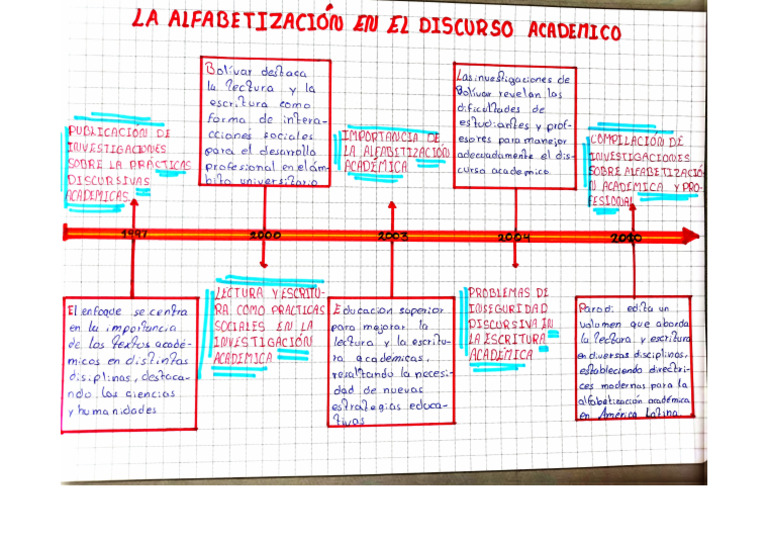 LA ALFABETIZACIÓN EN EL DISCURSO ACADEMICO
PUBLICACIÓN DE
INVESTIGACIONES
SOBRE LA PRÁSTICAS
DISCURSIVAS
ACADEMICAS.
Bolívar destaca
la lectura y la
escritura como
forma de intera-
cciones sociales
para el desarrollo
profesional en el ám-
bito universitario
IMPORTANCIA DE
LA ALFABETIZACIÓN
ACADÉMICA
Las investigaciones de
Bolívar revelan las
dificultades de
estudiantes y prof-
esores para manejar
adecuadamente el dis-
curso academico
COMPILACIÓN DE
INVESTIGACIONES
SOBRE ALFABETIZACIÓ-
N ACADEMICA Y PRO-
FESIONAL
1997
2000
2003
2004
2010
El enfoque se centra
en la importancia
de los textos acadé-
micos en distintas
disiplinas, destaca-
ndo las ciencias
y humanidades
LECTURA Y ESCRITU-
RA COMO PRACTICAS
SOCIALES EN LA
INVESTIGACIÓN
ACADEMICA
Educacion superior
para mejorar la
lectura y la escritu-
ra académicas,
resaltando la necesi-
dad de nuevas
estrategias educa-
tivas
PROBLEMAS DE
INSEGURIDAD
DISCURSIVA IN
LA ESCRITURA
ACADÉMICA
Parodi edita un
volumen que aborda
la lectura y escritura
en diversas disciplinas,
estableciendo directri-
ces modernas para la
alfabetización académica
en América Latina.